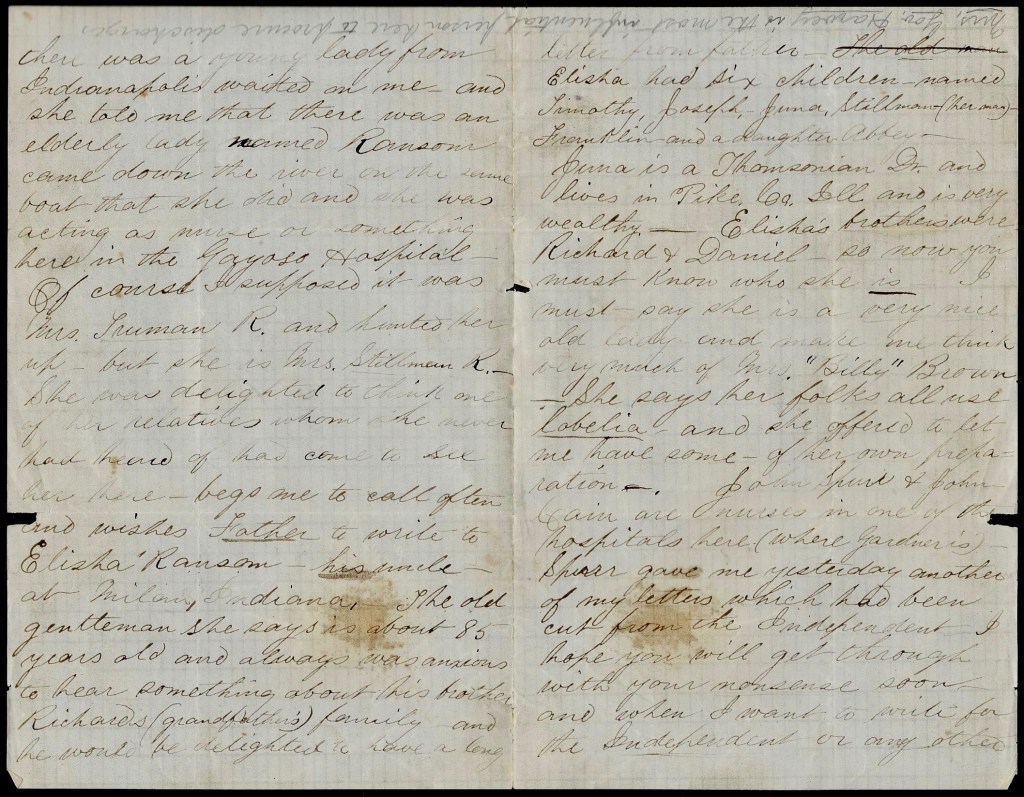 Mrs. Gov. Harvey is the most influential person here to procure discharges
there was a young lady from
Indianapolis waited on me - and
she told me that there was an
elderly lady named Ransom
came down the river on the same
boat that she did and she was
acting as nurse or something
here in the Gayoso Hospital -
Of course I supposed it was
Mrs. Truman R. and hunted her
up - but she is Mrs. Stillman R. -
She was delighted to think one
of her relatives whom she never
had heard of had come to see
her here - begs me to call often
and wishes Father to write to
Elisha Ransom - his uncle -
at Milan, Indiana. - The old
gentleman she says is about 85
years old and always was anxious
to hear something about his brother
Richards (grandfather's) family - and
he would be delighted to have a long
letter from father - The old man
Elisha had six children - named
Timothy, Joseph, Juna, Stillman - (her man) -
Franklin - and a daughter Abbey -
Juna is a Thomsonian Dr. and
lives in Pike, Co. Ill and is very
wealthy - Elisha's brothers were
Richard & Daniel - so now you
must know who she is - I
must say she is a very nice
old lady and made me think
very much of Mrs. "Billy" Brown
- She says her folks all use
lobelia - and she offered to let
me have some - of her own prepa-
ration -. John Spurr & John
Cain are nurses in one of the
hospitals here (where Gardner is) -
Spurr gave me yesterday another
of my letters which had been
cut from the Independent I
hope you will get through
with your nonsense soon -
and when I want to write for
the Independent or any other